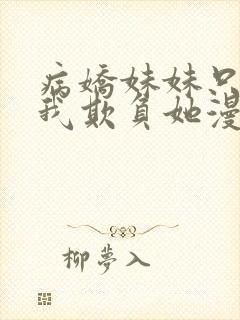 病嬌妹妹只
我欺負她漫
柳夢入